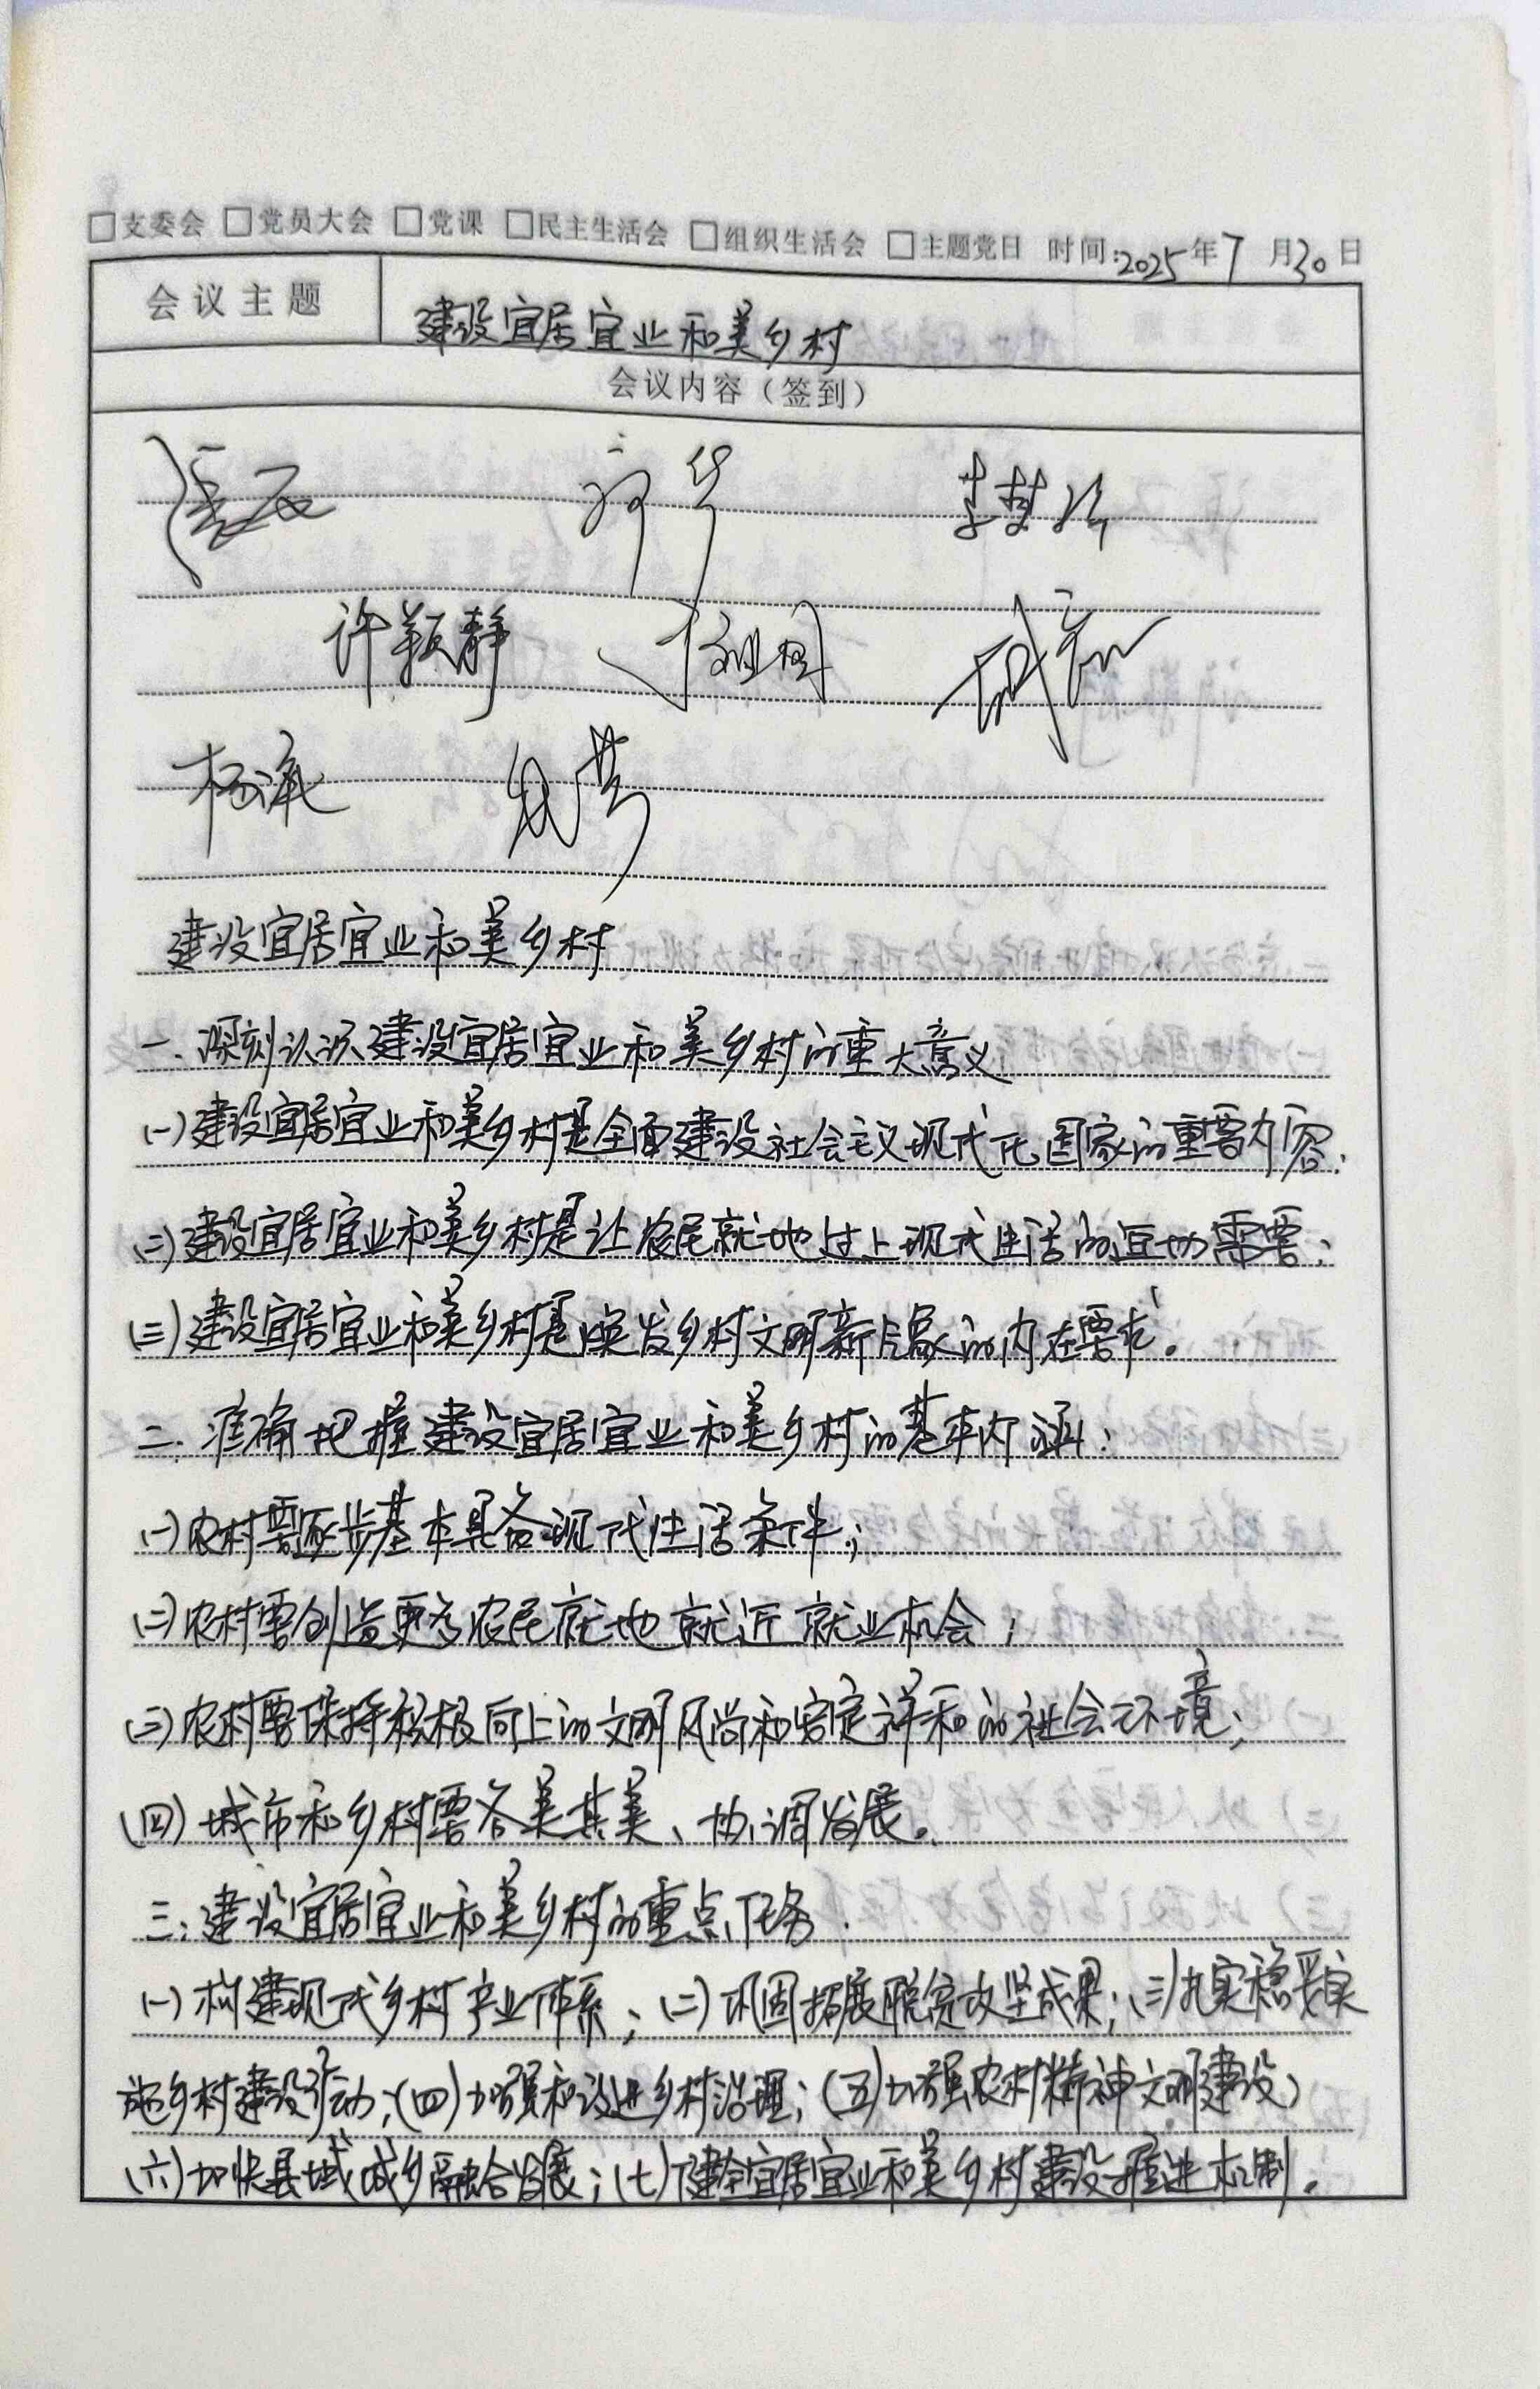 □支委会 □党员大会 □党课 □民主生活会 □组织生活会 □主题党日 时间:2025年7月30日
会议主题 建设宜居宜业和美乡村
会议内容（签到）
许颖静
建设宜居宜业和美乡村
一、深刻认识建设宜居宜业和美乡村的重大意义
(一)建设宜居宜业和美乡村是全面建设社会主义现代化国家的重要内容;
(二)建设宜居宜业和美乡村是让农民就地过上现代生活的迫切需要;
(三)建设宜居宜业和美乡村是焕发乡村文明新气象的内在要求。
二、准确把握建设宜居宜业和美乡村的基本内涵:
(一)农村要逐步基本具备现代生活条件;
(二)农村要创造更多农民就地就近就业机会;
(三)农村要保持积极向上的文明风尚和安定祥和的社会环境;
(四)城市和乡村要各美其美、协调发展。
三、建设宜居宜业和美乡村的重点任务.
(一)构建现代乡村产业体系;(二)巩固拓展脱贫攻坚成果;(三)扎实稳妥实
施乡村建设行动;(四)加强和改进乡村治理;(五)加强农村精神文明建设;
(六)加快县域城乡融合发展;(七)健全宜居宜业和美乡村建设推进机制.